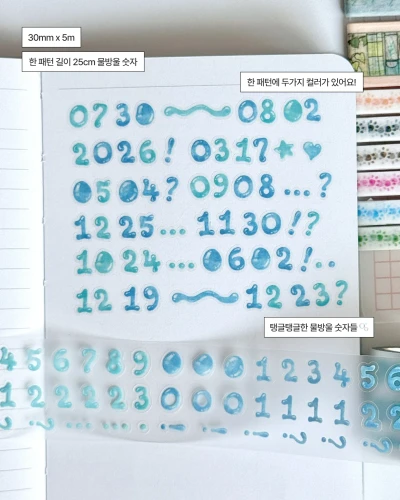 30mm x 5m
한 패턴 길이 25cm 물방울 숫자
한 패턴에 두가지 컬러가 있어요!
0730 ~ 0802
2026! 0317
05 04? 0908 ...?
1225... 1130!?
10 24.... 0602!..
12 19 ~ 1223?
탱글탱글한 물방울 숫자들
456789000123456
12222300011112